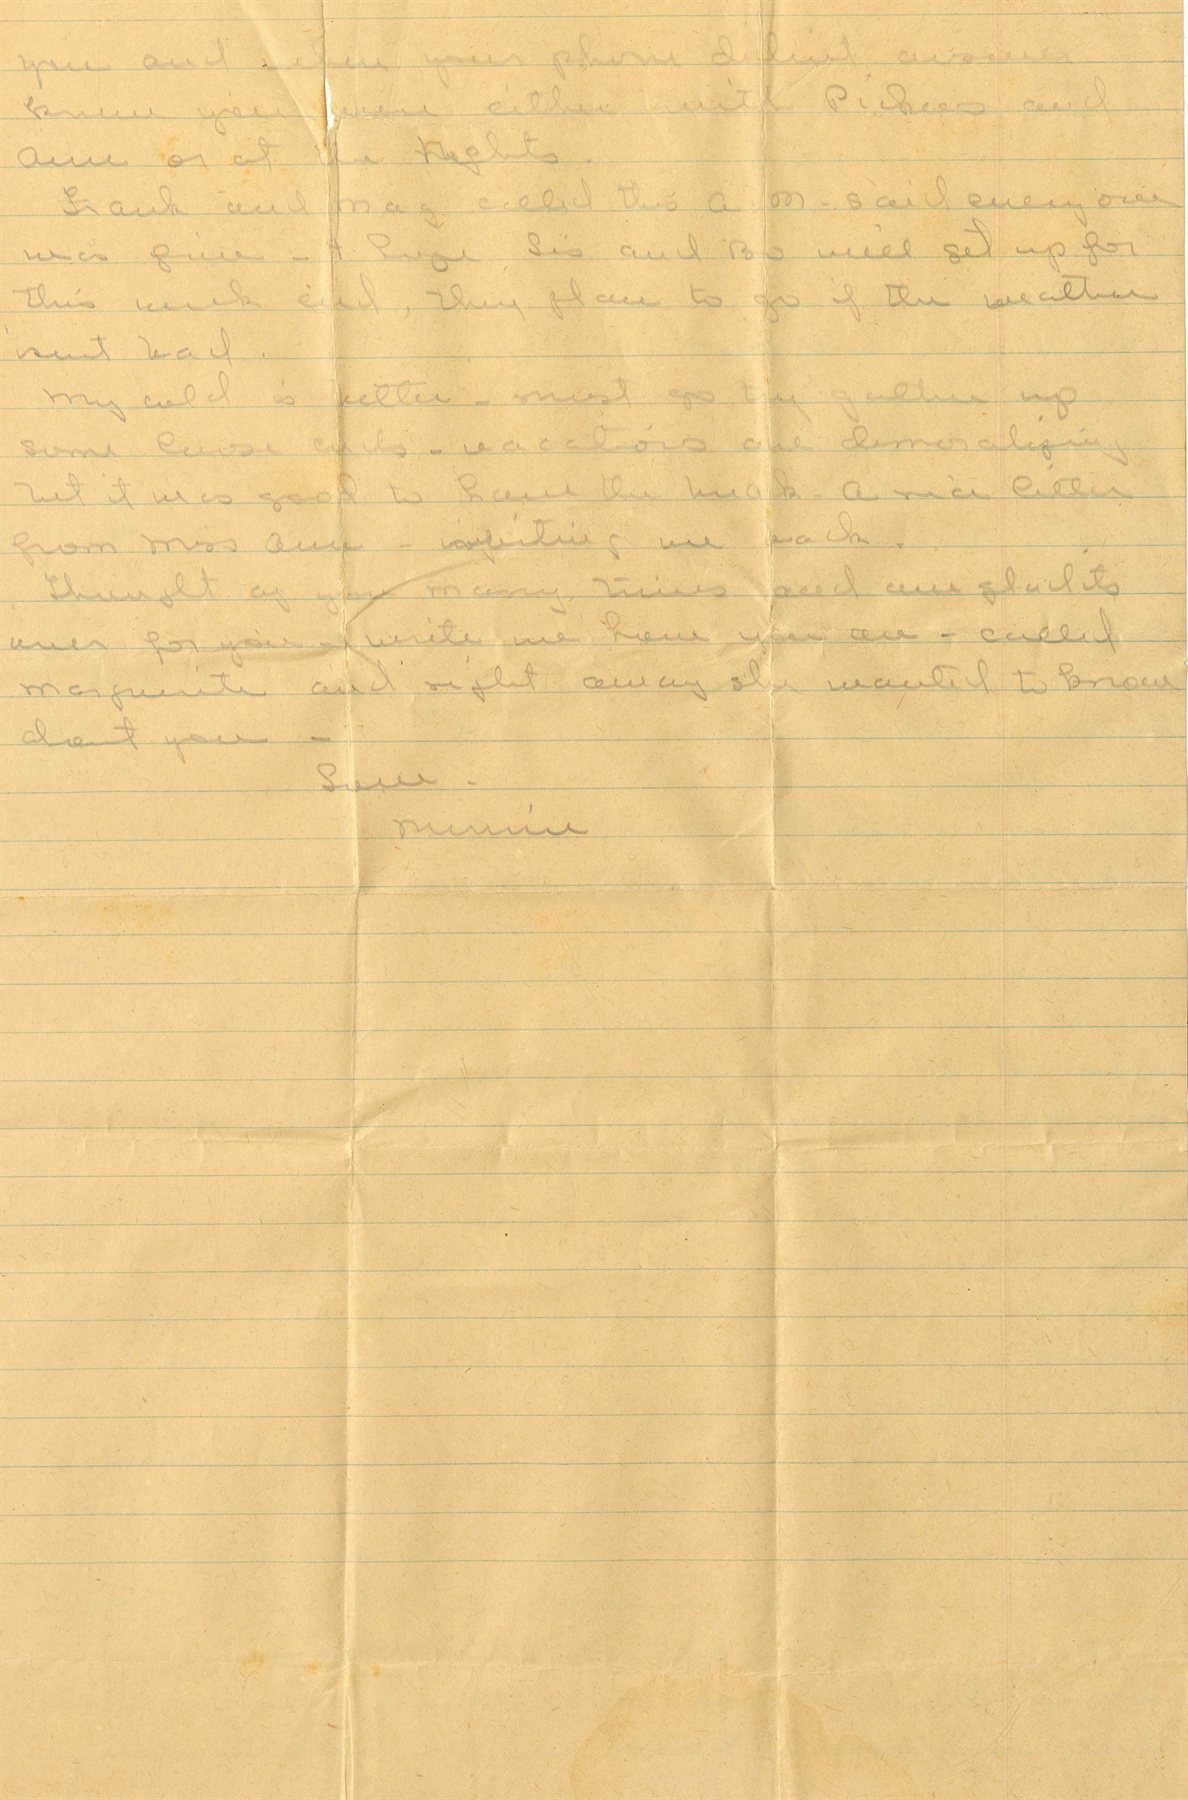 you and when your phone didn't answer
knew you were either with Pickens and
Ann or at the Hights.
Frank and Mag called this A.M. said everyone
was fine - I hope Sis and Bo will get up for
this week end, they plan to go if the weather
isnt bad.
My cold is better - must go try gather up
some loose ends - vacations are demoralizing
but it was good to have the break. A nice letter
from Miss Ann - inviting me back.
Thought of you many times and am glad its
over for you - write me how you are - called
Marguerite and right away she wanted to know
about you -
Love -
Minnie